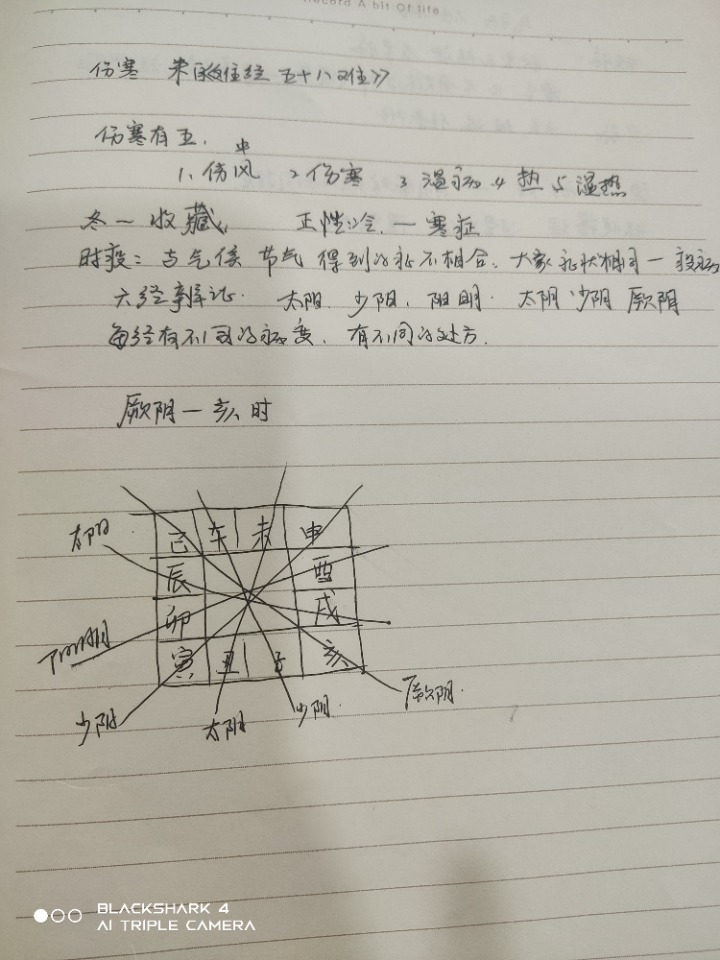 Record A bit Of life
伤寒 来自《难经 五十八难》
伤寒有五.
中
1、伤风 2 伤寒 3 温病 4 热 5 湿热
冬一 收藏, 正性冷. 一 寒症
时疫: 与气候 节气 得到的症不相合. 大家症状相同一 疫病
六经辨证. 太阳. 少阳. 阳明. 太阴 少阴 厥阴
每经有不同的病 . 有不同的处方.
厥阴一亥时
太阳
巳 午 未 申
辰 酉
卯 戌
阳明
寅 丑 子 亥
少阳 太阴 少阴. 厥阴.
BLACKSHARK 4
AI TRIPLE CAMERA